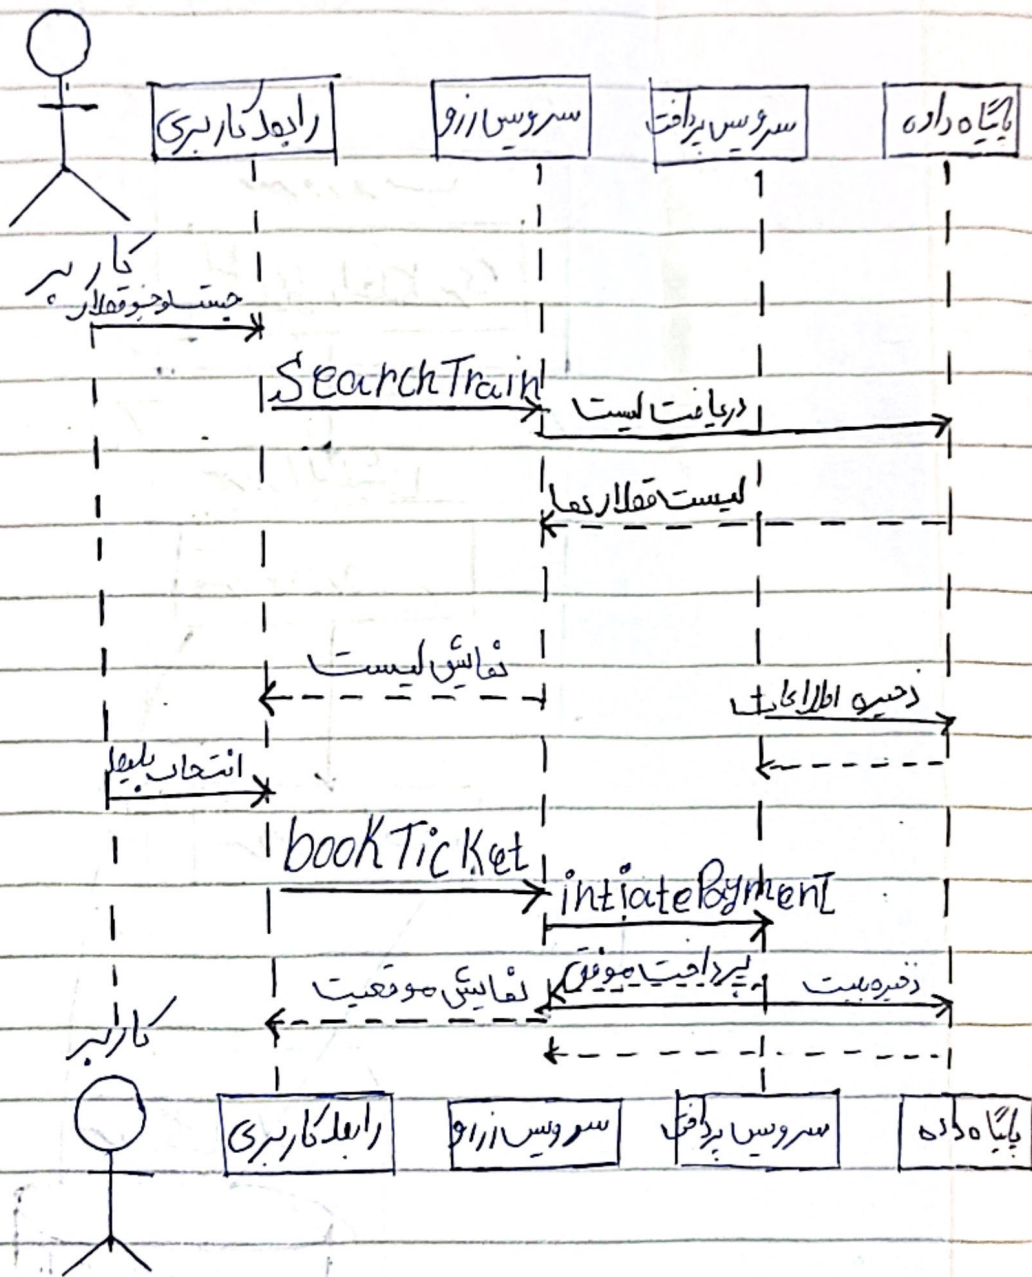 رابط کاربری
سرویس رزو
سرویس پرداخت
پایگاه داده
کاربر
جست وجو قطار
SearchTrain
دریافت لیست
لیست قطارها
نمایش لیست
ذخیره اطلاعات
انتخاب بلیط
bookTicket
intiatePayment
پرداخت موفق
ذخیره بلیت
نمایش موقعیت
کاربر
رابط کاربری
سرویس
سرویس پرداخت
پایگاه داده